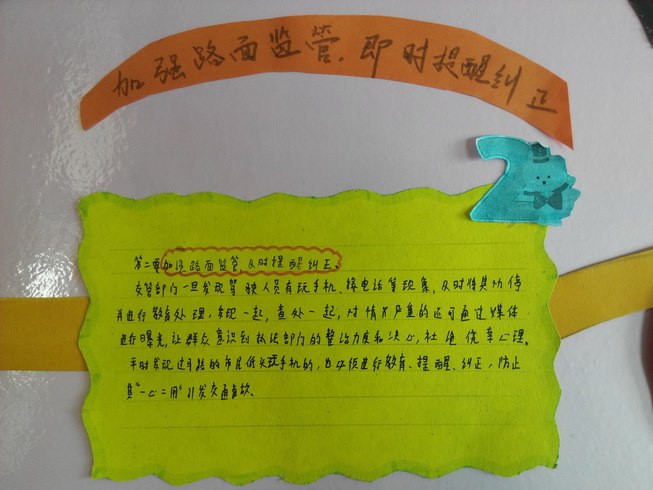 加强路面监管，即时提醒纠正
2
第二要加强路面监管，及时提醒纠正。
交管部门一旦发现驾驶人员有玩手机、接电话等现象，及时将其叫停
并进行教育处理，发现一起，查处一起，对情节严重的还可通过媒体
进行曝光，让群众意识到执法部门的整治力度和决心，杜绝侥幸心理。
平时发现过马路的市民低头玩手机的，也必须进行教育、提醒、纠正，防止
其“一心二用”引发交通事故。